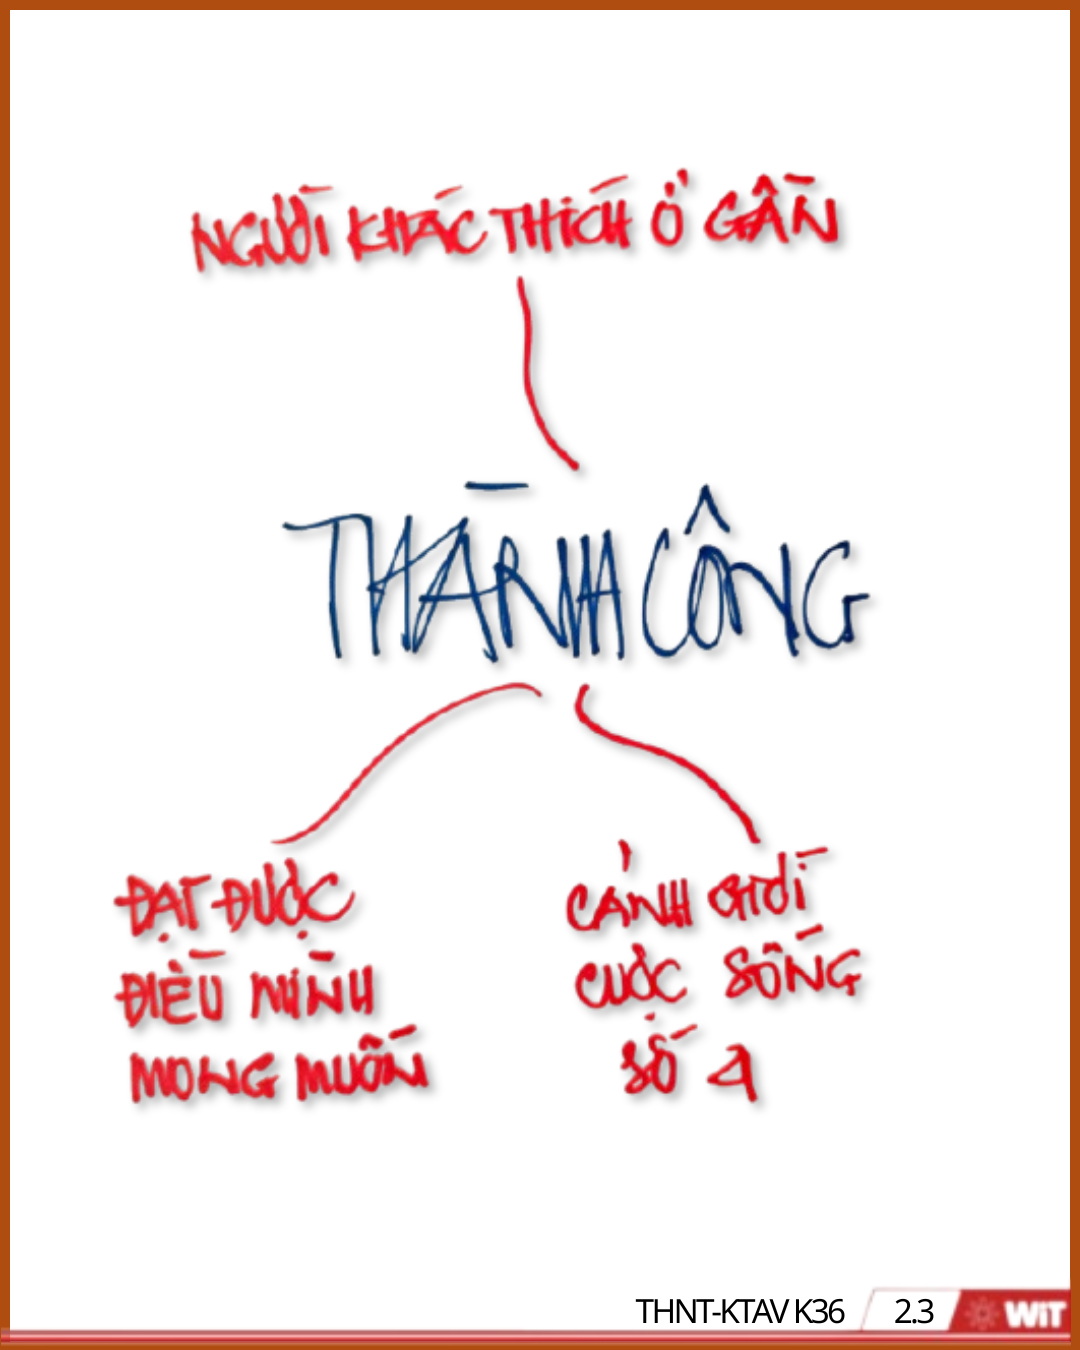 NGƯỜI KHÁC THÍCH Ở GẦN
THÀNH CÔNG
ĐẠT ĐƯỢC
ĐIỀU MÌNH
MONG MUỐN
CẢNH GIỚI
CUỘC SỐNG
SỐ 4
THNT-KTAV K36
2.3
WiT